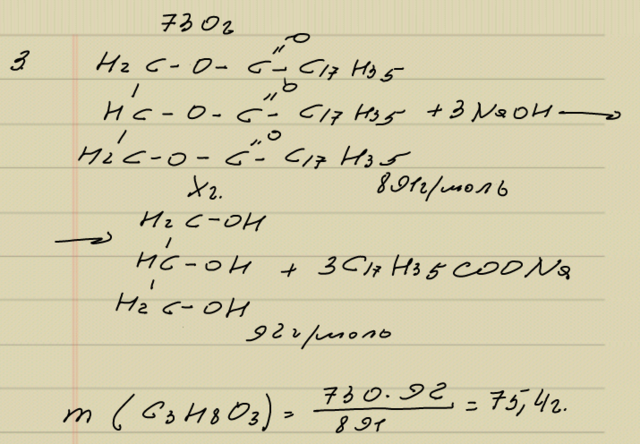 730г
3. H2C-O-C=O-C17H35
HC-O-C=O-C17H35 + 3NaOH →
H2C-O-C=O-C17H35
Xг. 891г/моль
H2C-OH
→ HC-OH + 3C17H35COONa
H2C-OH
92г/моль
m (C3H8O3) = 730·92 / 891 = 75,4г.